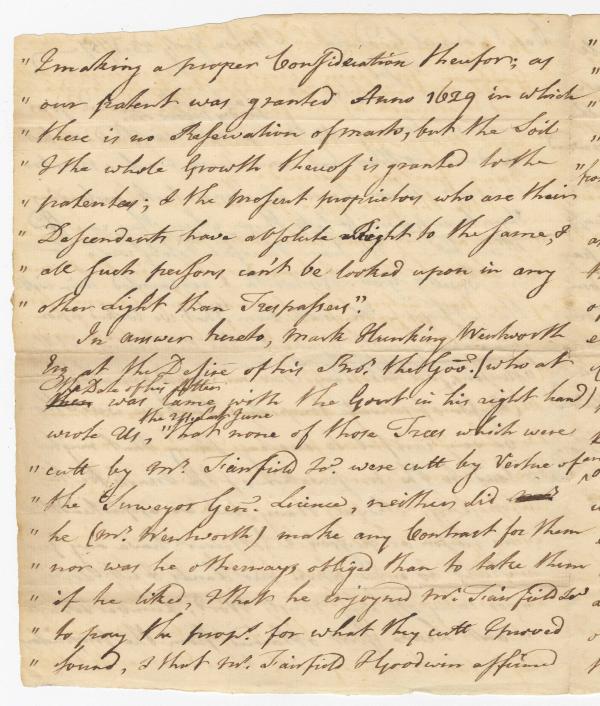 " & making a proper Consideration therefor; as
" our patent was granted Anno 1629 in which
" there is no Reservation of masts, but the Soil
" & the whole Growth thereof is granted to the
" patentees; & the present proprietors who are their
" Descendents have absolute Right to the same, &
" all such persons can't be looked upon in any
" other Light than Trespassers".
In answer hereto, Mark Hunking Wentworth
Esq at the Desire of his Bror. the Govr. (who at
the Date of his letter
then was lame with the Gout in his right hand)
the 29th last June
wrote us, "that none of those Trees which were
" cutt by Mr. Fairfield &c. were cutt by Vertue of
" the Surveyor Genl. Licence, neither did
" he (Mr. Wentworth) make any Contract for them
" nor was he otherways obliged than to take them
" if he liked, & that he enjoyned Mr. Fairfield &c
" to pay the propr. for what they cutt & proved
" sound, & that Mr. Fairfield & Goodwin affirmed